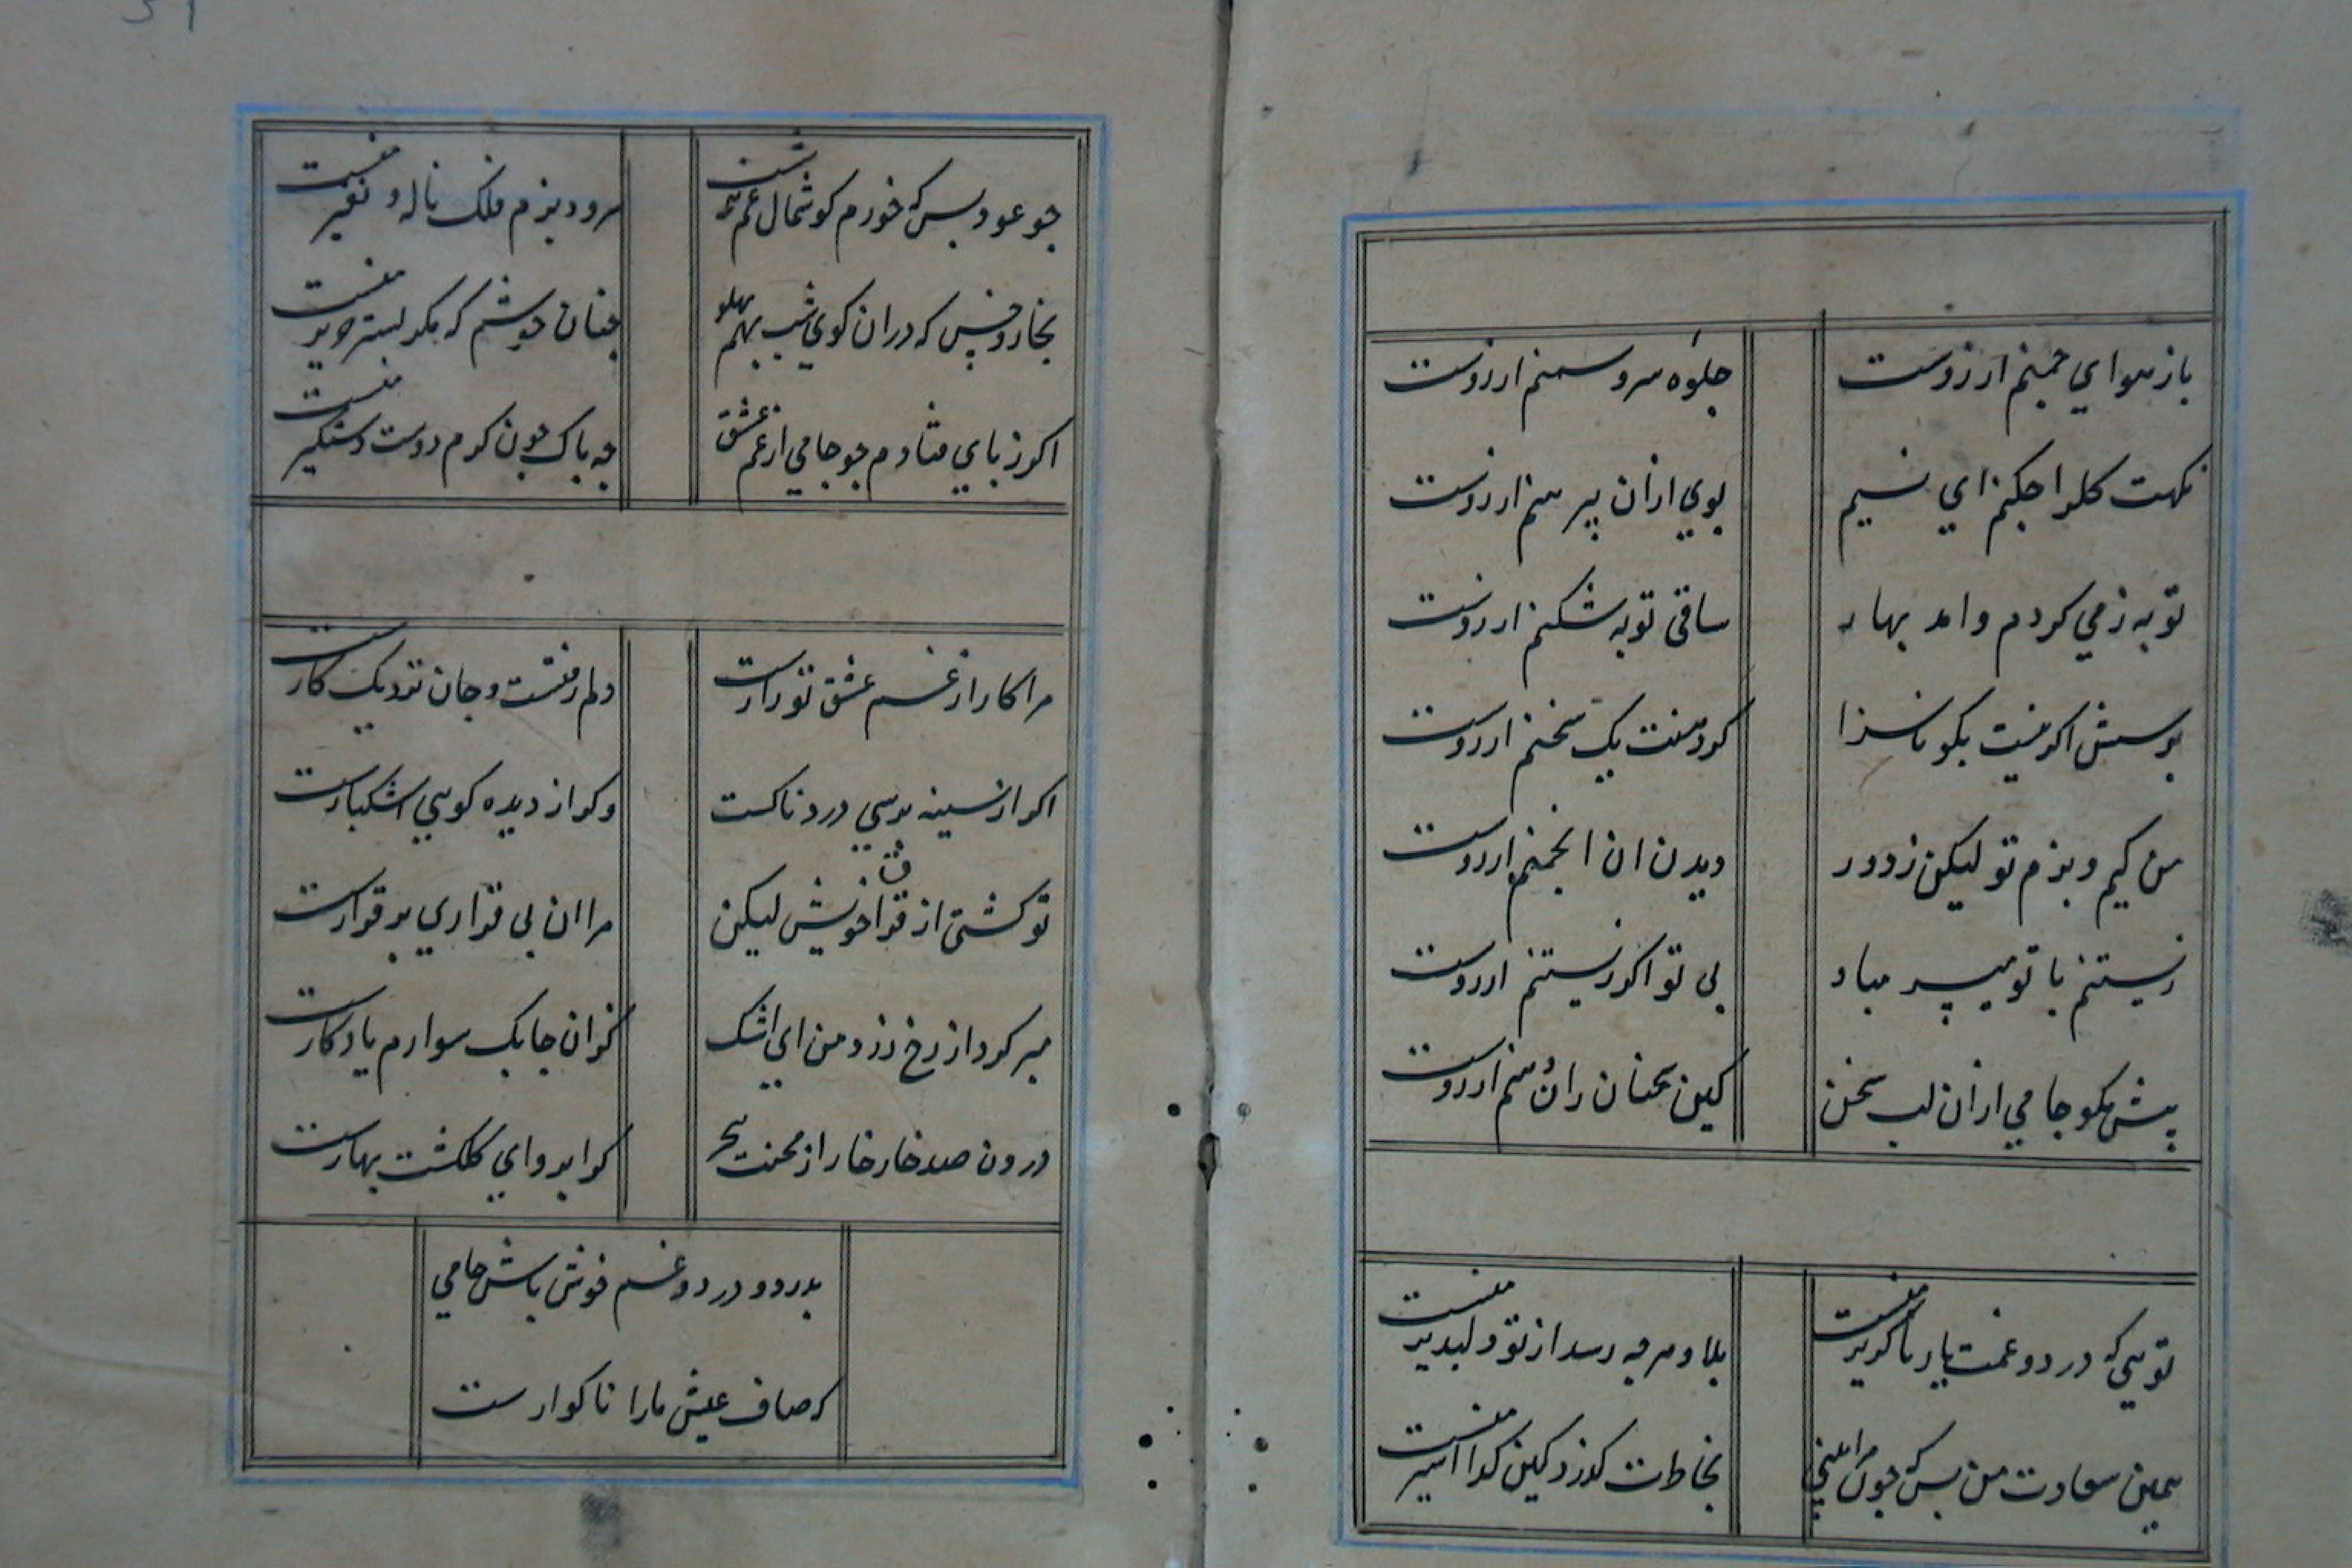 باز هوای چمنم ارزوست
جلوه سرو سمنم ارزوست
نکهت کلرا چکنم ای نسیم
بوی ازان پیرهنم ارزوست
توبه ز می کردم وامد بهار
ساقی توبه شکنم ارزوست
پرسش اکر نیست بکو ناسزا
کز دهنت یک سخنم ارزوست
من کیم و بزم تو لیکن ز دور
دیدن ان انجمنم ارزوست
زیستنم با تو میسر مباد
بی تو اکر زیستنم ارزوست
پیش مکو جامی ازان لب سخن
کین سخنان زان دهنم ارزوست
تویی که درد و غمت یار ناکزیر منست
بلا و هر چه رسد از تو دلپذیر منست
همین سعادت من بس که چون مرا بینی
بخاطرت کذرد کین کدا اسیر منست
چو عود بس که خورم کوشمال غم
سرود بزم فلک ناله و نفیر منست
بخار و خس که دران کوی شب نهم پهلو
چنان خوشم که مکر بستر حریر منست
اکر ز پای فتادم چو جامی از غم عشق
چه باک چون کرم دوست دستکیر منست
مرا کار از غم عشق تو زارست
دلم رفتست و جان نزدیک کارست
اکر از سینه پرسی دردناکست
وکر از دیده کویی اشکبارست
تو کشتی از قرار خویش لیکن
مرا ان بی قراری بر قرارست
مبر کرد از رخ زرد من ای اشک
کزان چابک سوارم یادکارست
درون صد خار خار از محنت هجر
کرا پروای کلکشت بهارست
بدرد و درد و غم خوش باش جامی
که صاف عیش مارا ناکوارست